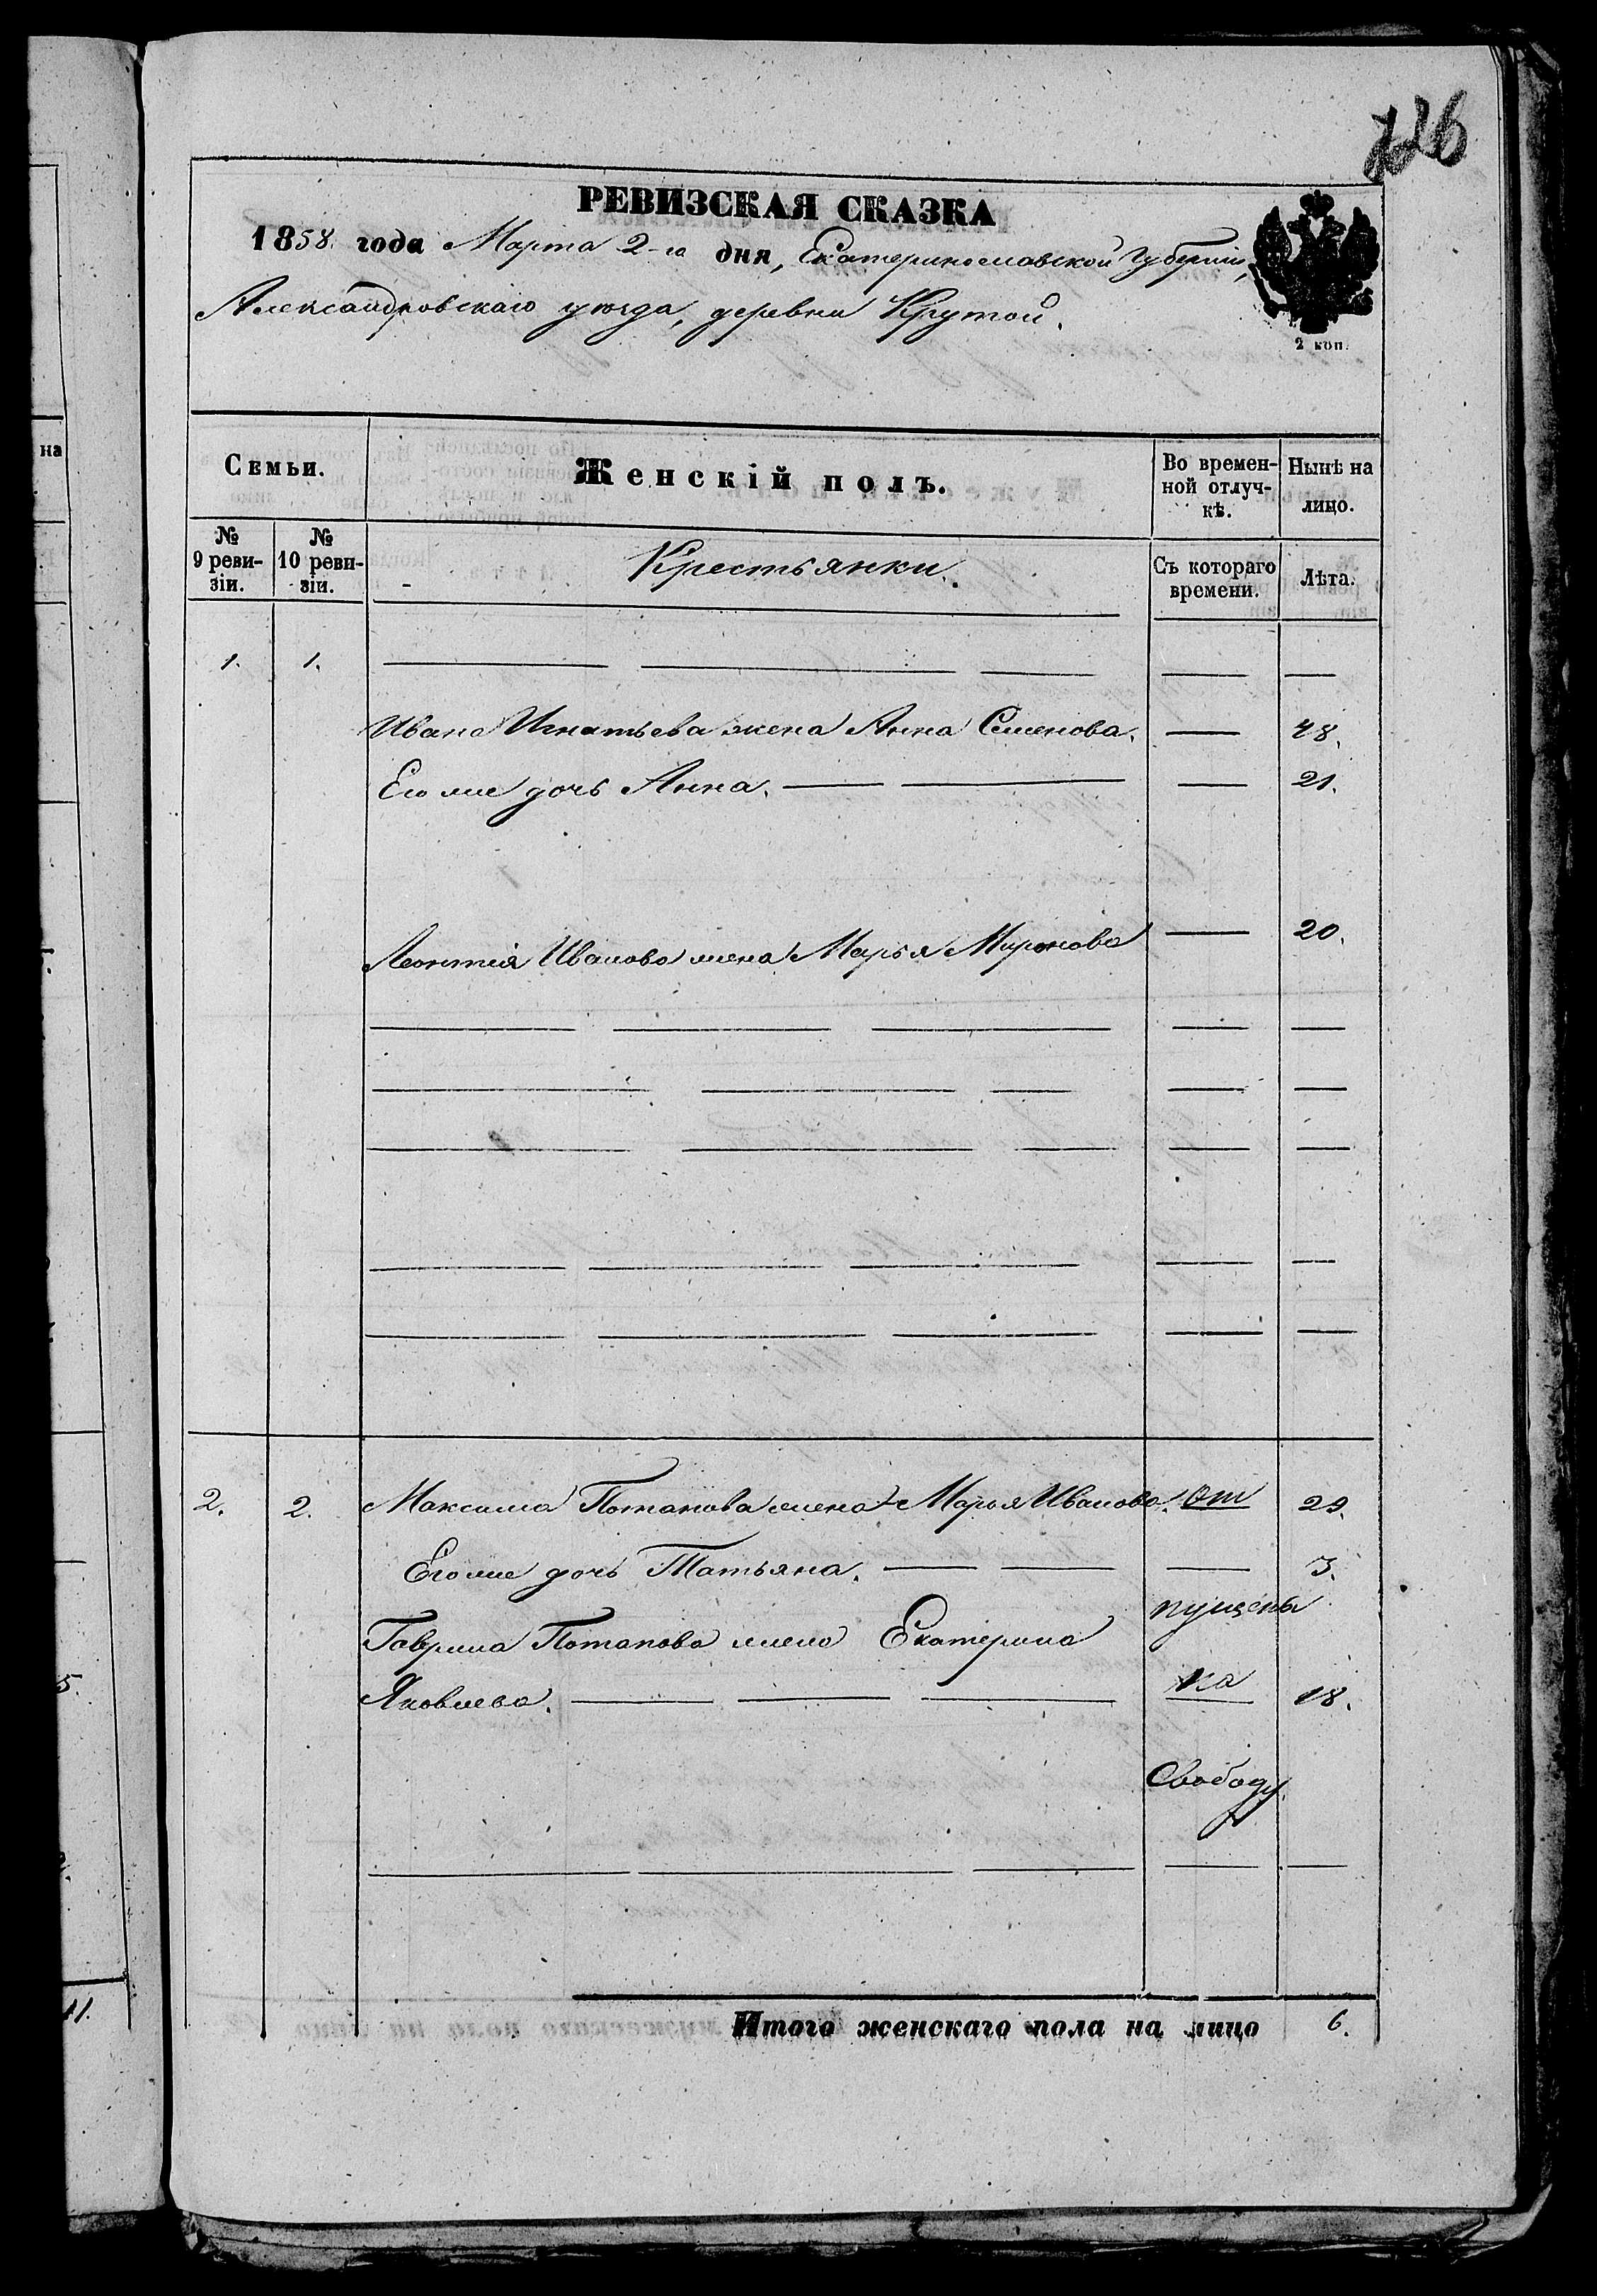 726
РЕВИЗСКАЯ СКАЗКА
1858 года Марта 2-го дня, Екатеринославской Губерніи,
Александровскаго уѣзда, деревни Крутой.
2 коп.
на
Семьи.
Женскій полъ.
Во времен-
ной отлуч-
кѣ.
Нынѣ на
лицо.
№
9 реви-
зіи.
№
10 реви-
зіи.
Крестьянки.
Съ котораго
времени.
Лѣта.
1. 1.
Ивана Игнатьева жена Анна Семенова. 48.
Его же дочь Анна. 21.
Леонтія Иванова жена Марья Миронова 20.
2. 2. Максима Потапова жена Марья Иванова. От 29.
Его же дочь Татьяна. 3.
пущены
Гаврила Потапова жена Екатерина
Яковлева. на 18.
Свободу.
5.
11.
Итого женскаго пола на лицо 6.